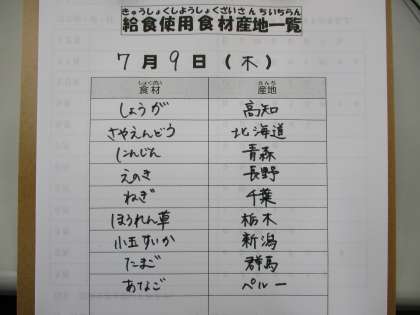 きゅうしょくしようしょくざいさんちいちらん
給食使用食材産地一覧
7月9日(木)
しょくざい さんち
食材 産地
しょうが 高知
さやえんどう 北海道
にんじん 青森
えのき 長野
ねぎ 千葉
ほうれん草 栃木
小玉すいか 新潟
たまご 群馬
あなご ペルー